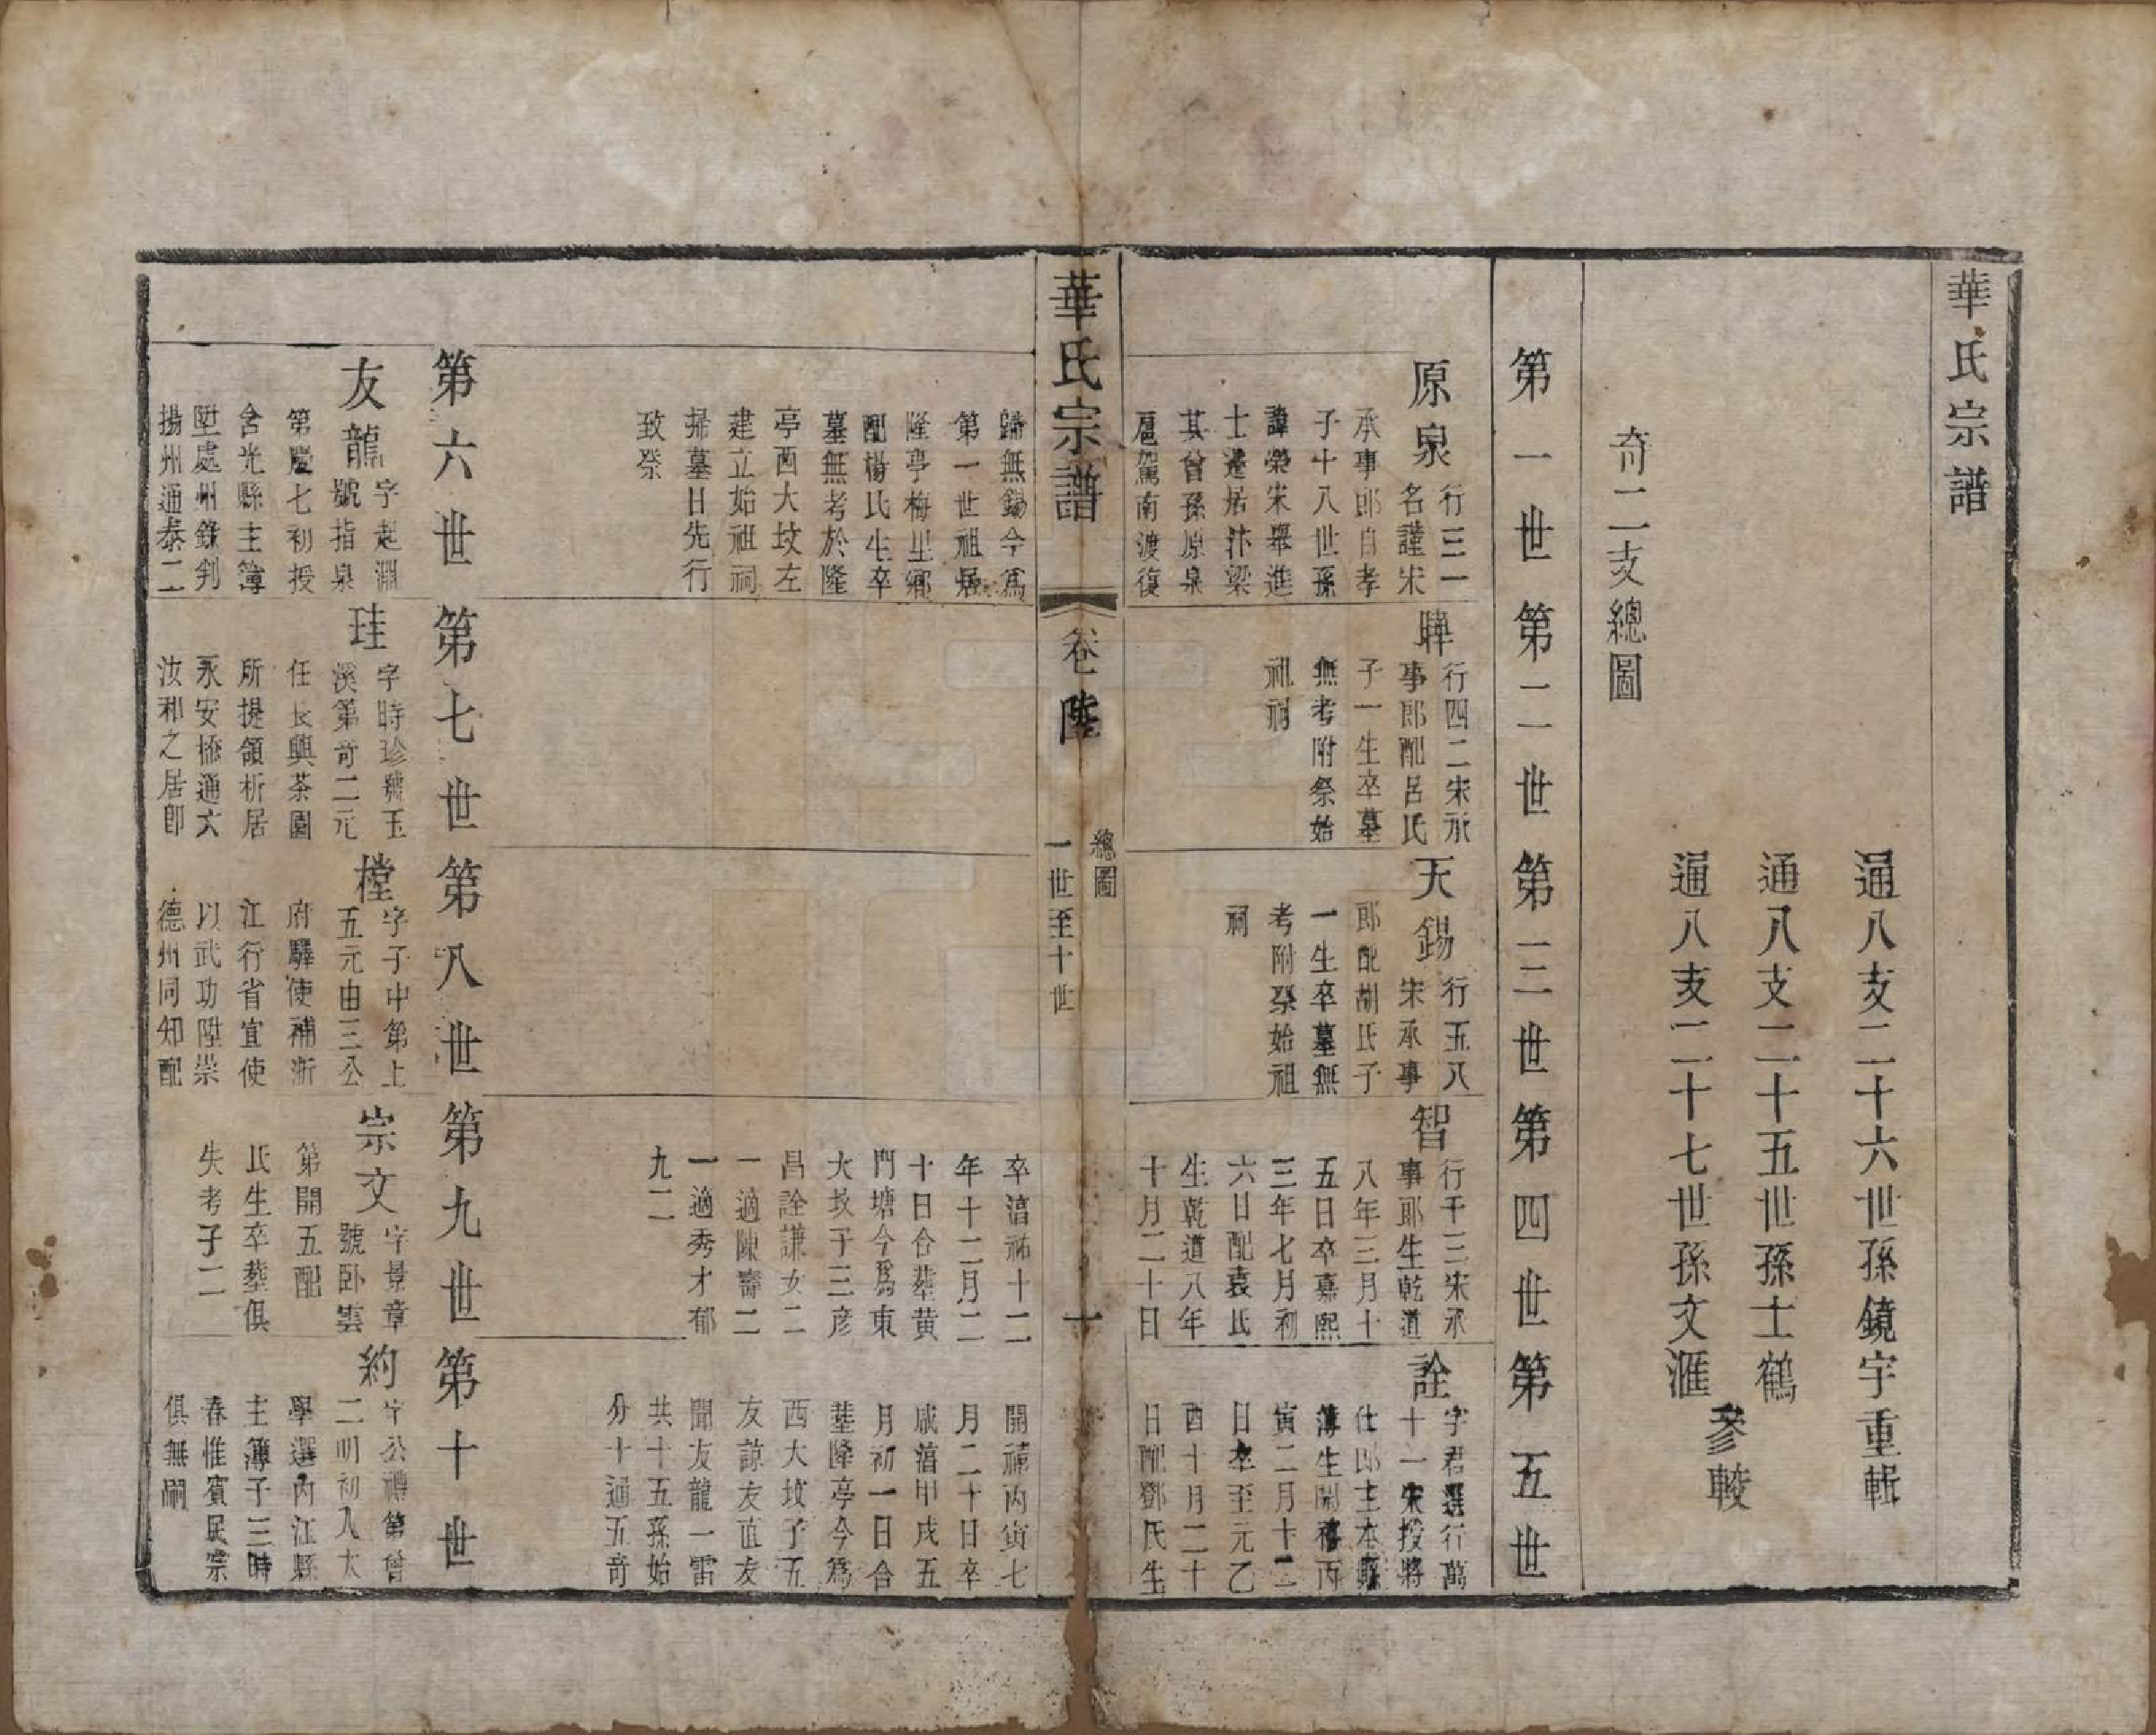 華氏宗譜
通八支二十六世孫鏡宇重輯
通八支二十五世孫士鶴
通八支二十七世孫文滙
參較
奇二支總圖
第一世
第二世
第三世
第四世
第五世
原泉
行三一
名謹宋
承事郎自孝
子十八世孫
諱榮宋舉進
士遷居汴梁
其曾孫原泉
扈駕南渡復
歸無錫今爲
第一世祖居
隆亭梅里鄉
配楊氏生卒
墓無考於隆
亭酉大坟左
建立始祖祠
掃墓日先行
致祭
暷
行四二宋承
事郎配呂氏
子一生卒墓
無考附祭始
祖祠
天錫
行五八
宋承事
郎配胡氏子
一生卒墓無
考附祭始祖
祠
智
行千三宋承
事郎生乾道
八年三月十
五日卒嘉熙
三年七月初
六日配袁氏
生乾道八年
十月二十日
卒湻祐十二
年十二月二
十日合塟黃
門塘今爲東
大坟子三彦
昌詮謙女二
一適陳壽二
一適秀才郁
九二
詮
字君選行萬
十一宋授將
仕郎主本縣
簿生開禧丙
寅二月十二
日卒至元乙
酉十月二十
日配鄧氏生
開禧丙寅七
月二十日卒
咸湻甲戌五
月初一日合
塟隆亭今爲
西大坟子五
友諒友直友
聞友龍一雷
共十五孫始
分十通五奇
華氏宗譜
卷 陸
總圖
一世至十世
一
第六世
第七世
第八世
第九世
第十世
友龍
字起淵
號指泉
第慶七初授
含光縣主簿
陞處州錄判
揚州通泰二
珪
字時珍號玉
溪第奇二元
任長興茶園
所提領析居
永安橋通六
汝和之居卽
樘
字子中第上
五元由三公
府驛使補浙
江行省宣使
以武功陞崇
德州同知配
宗文
字景章
號卧雲
第開五配
氏生卒塟俱
失考子二
約
字公禮第曾
二明初入太
學選內江縣
主簿子三時
春惟賓民宗
俱無嗣